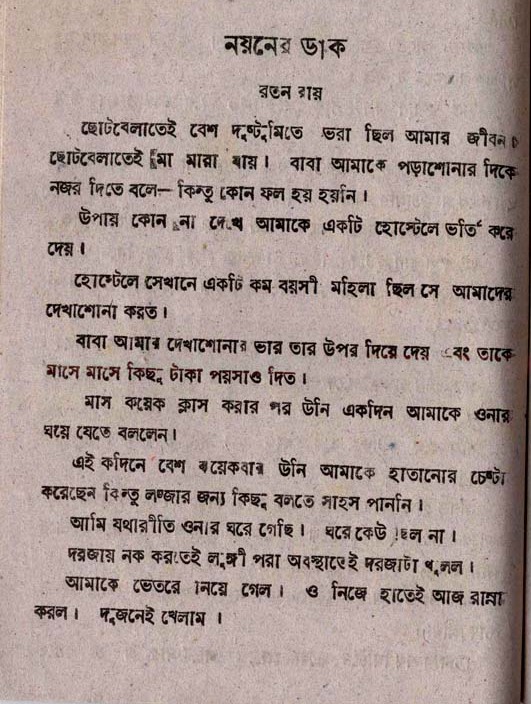 নয়নের ডাক
রতন রায়
ছোটবেলাতেই বেশ দুষ্টুমিতে ভরা ছিল আমার জীবন।
ছোটবেলাতেই মা মারা যায়। বাবা আমাকে পড়াশোনার দিকে
নজর দিতে বলে— কিন্তু কোন ফল হয় হয়নি।
উপায় কোন না দেখে আমাকে একটি হোস্টেলে ভর্তি করে
দেয়।
হোস্টেলে সেখানে একটি কম বয়সী মহিলা ছিল সে আমাদের
দেখাশোনা করত।
বাবা আমার দেখাশোনার ভার তার উপর দিয়ে দেয় এবং তাকে
মাসে মাসে কিছু টাকা পয়সাও দিত।
মাস কয়েক ক্লাস করার পর উনি একদিন আমাকে ওনার
ঘরে যেতে বললেন।
এই কদিনে বেশ কয়েকবার উনি আমাকে হাতানোর চেষ্টা
করেছেন কিন্তু লজ্জার জন্য কিছু বলতে সাহস পাননি।
আমি যথারীতি ওনার ঘরে গেছি। ঘরে কেউ ছিল না।
দরজায় নক করতেই লুঙ্গী পরা অবস্থাতেই দরজাটা খুলল।
আমাকে ভেতরে নিয়ে গেল। ও নিজে হাতেই আজ রান্না
করল। দুজনেই খেলাম।